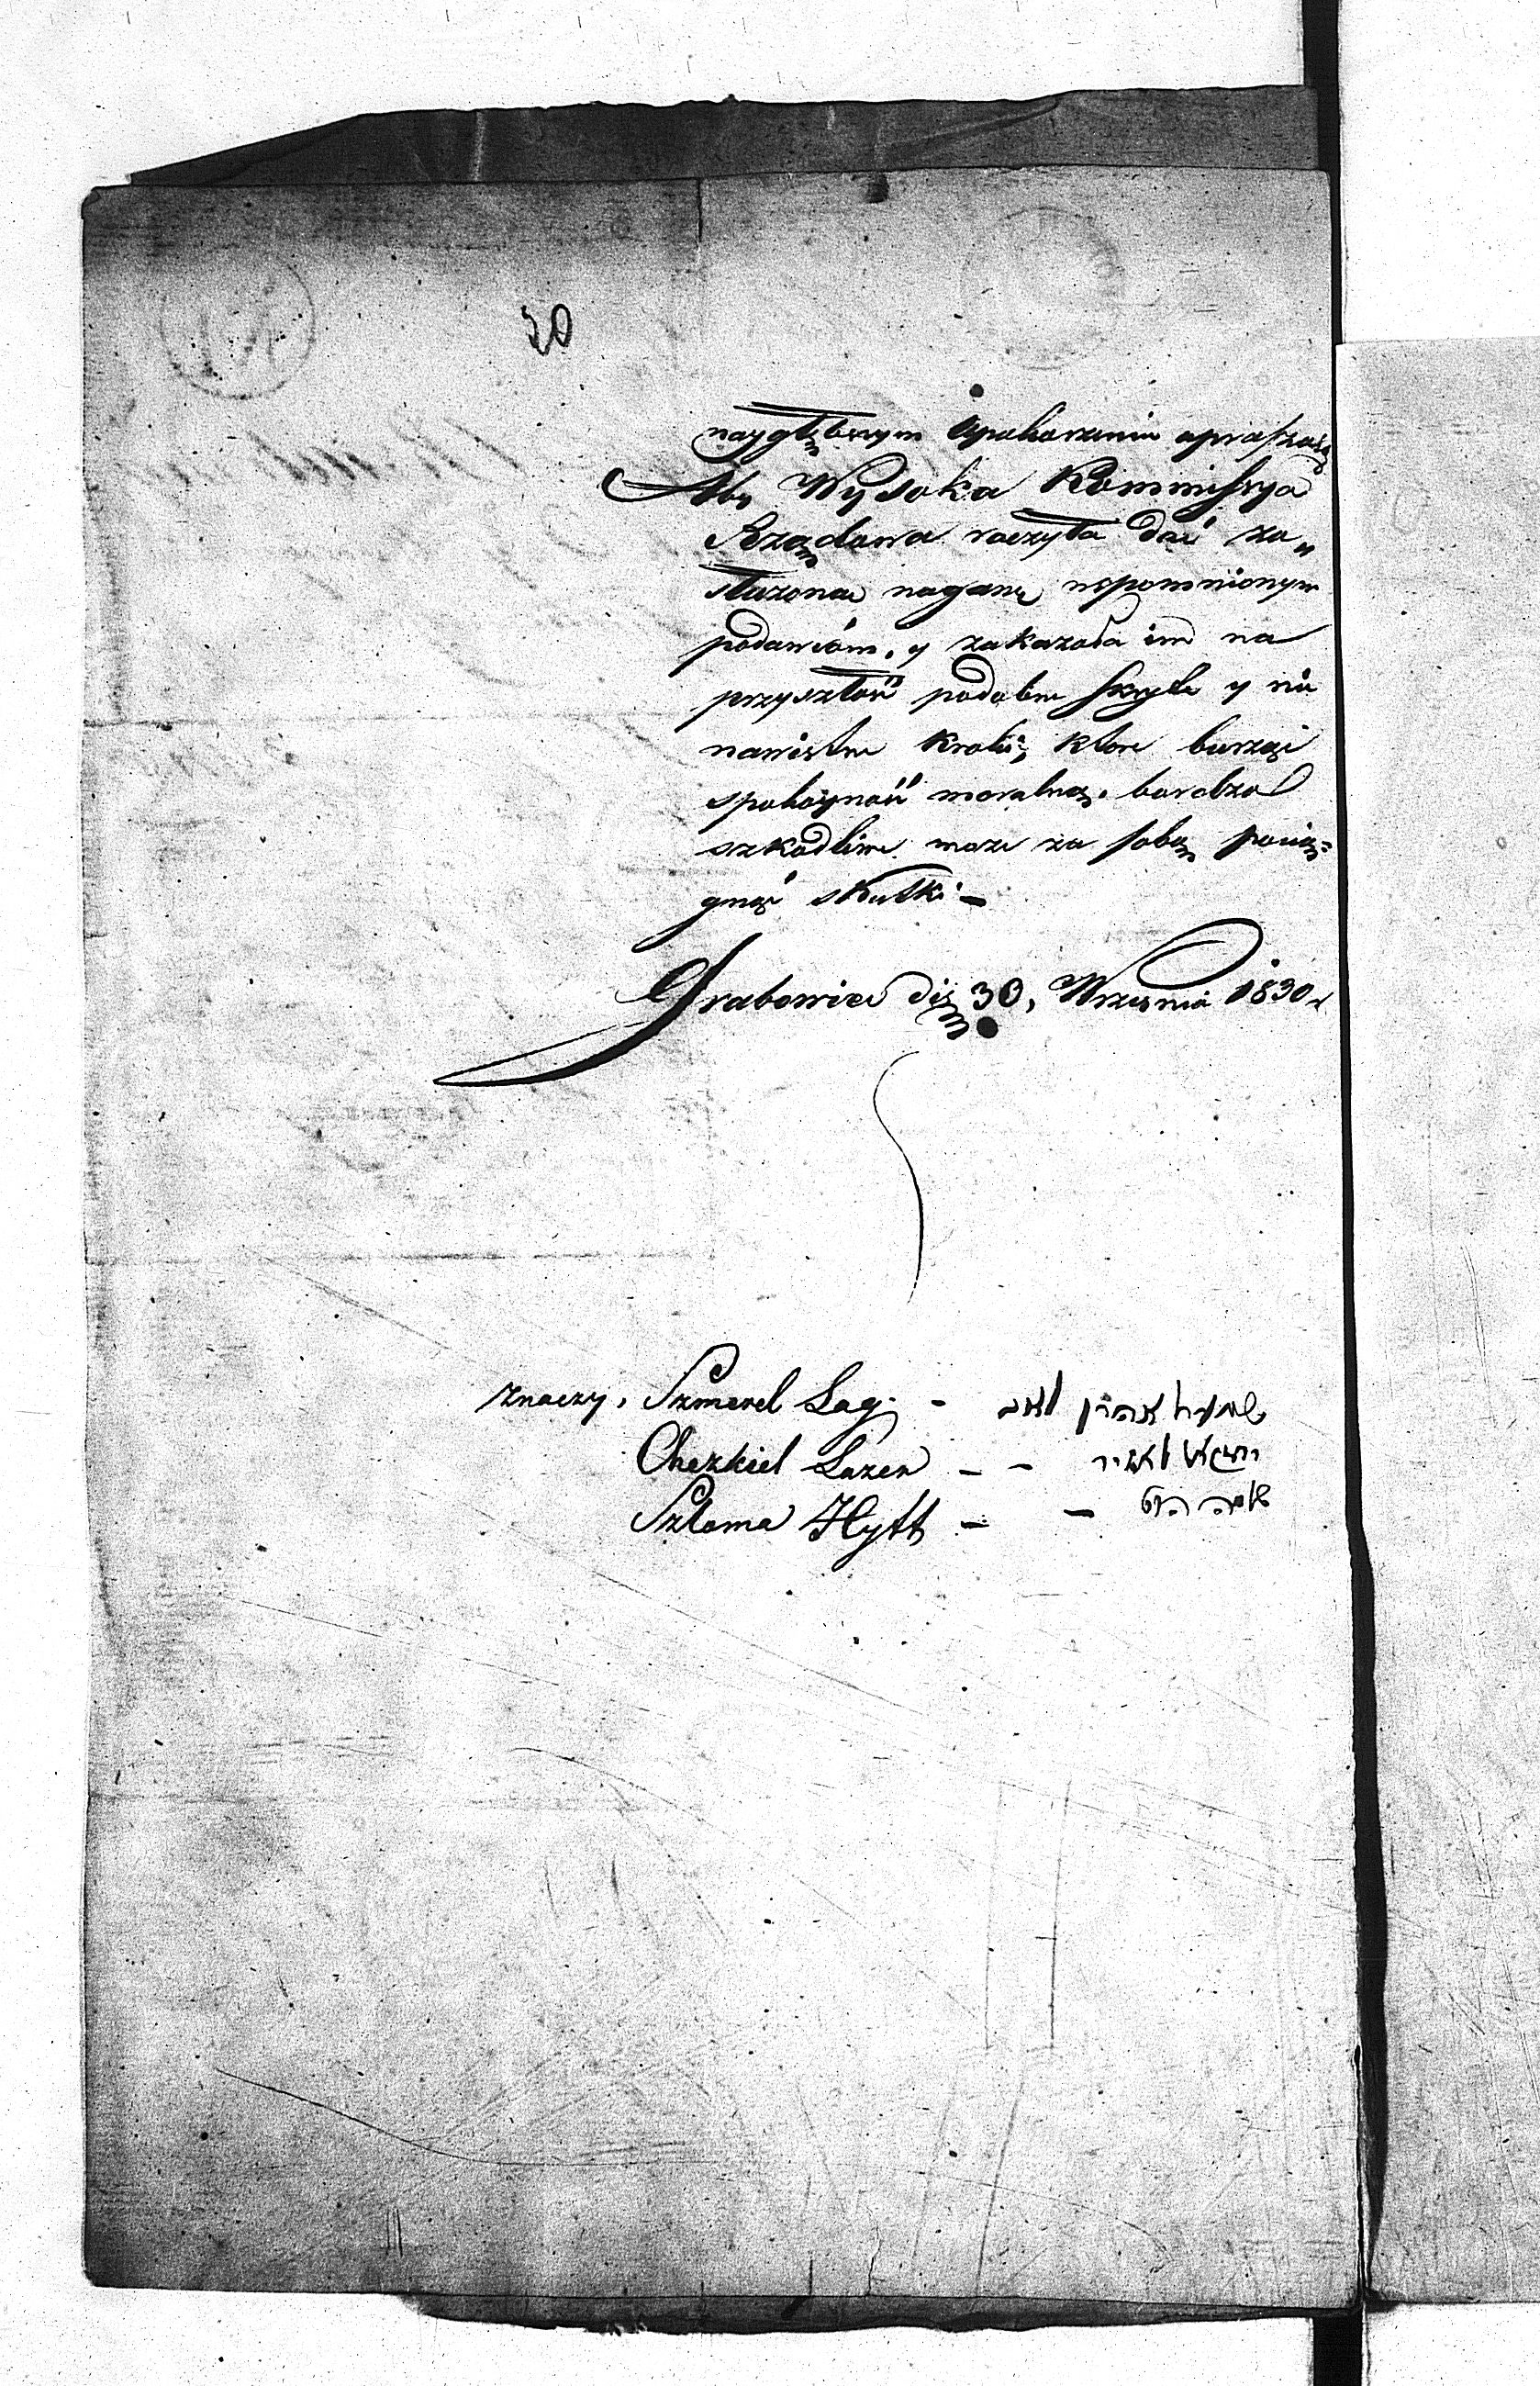 20
naygłębszym upokorzeniu upraszają
Aby Wysoka Kommissya
Rządowa raczyła dać za„
służoną naganę wspomnionym
podawcóm, y zakazała im na
przyszłość podobne skryte y nie
nawistne kroki, które burząc
spokoyność moralną, bardzo
szkodliwe może za sobą pocią„
gnąć skutki —
Grabowiec dię 30, Września 1830 r
Znaczy, Szmerel Lag. -
Chezkiel Lazer - - יחזקאל לאזיר
Szloma Hytt - - שלמה היט